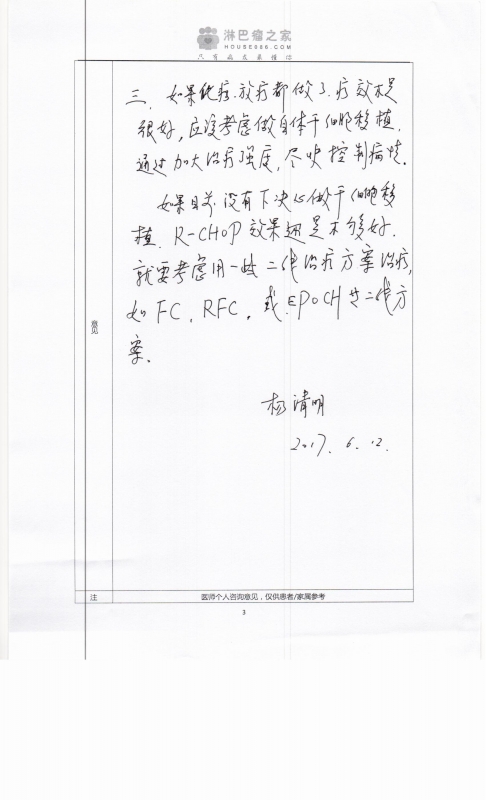 淋巴瘤之家
HOUSE086.COM
只有病友最懂你
三、如果化疗、放疗都做了,疗效不是
很好,应该考虑做自体干细胞移植,
通过加大治疗强度,尽快控制病情。
如果目前没有下决心做干细胞移
植,R-CHOP效果还是不够好,
就要考虑用一些二线治疗方案治疗,
如FC、RFC,或EPOCH等二线方
案。
意见
杨清明
2017.6.12.
注
医师个人咨询意见,仅供患者/家属参考
3